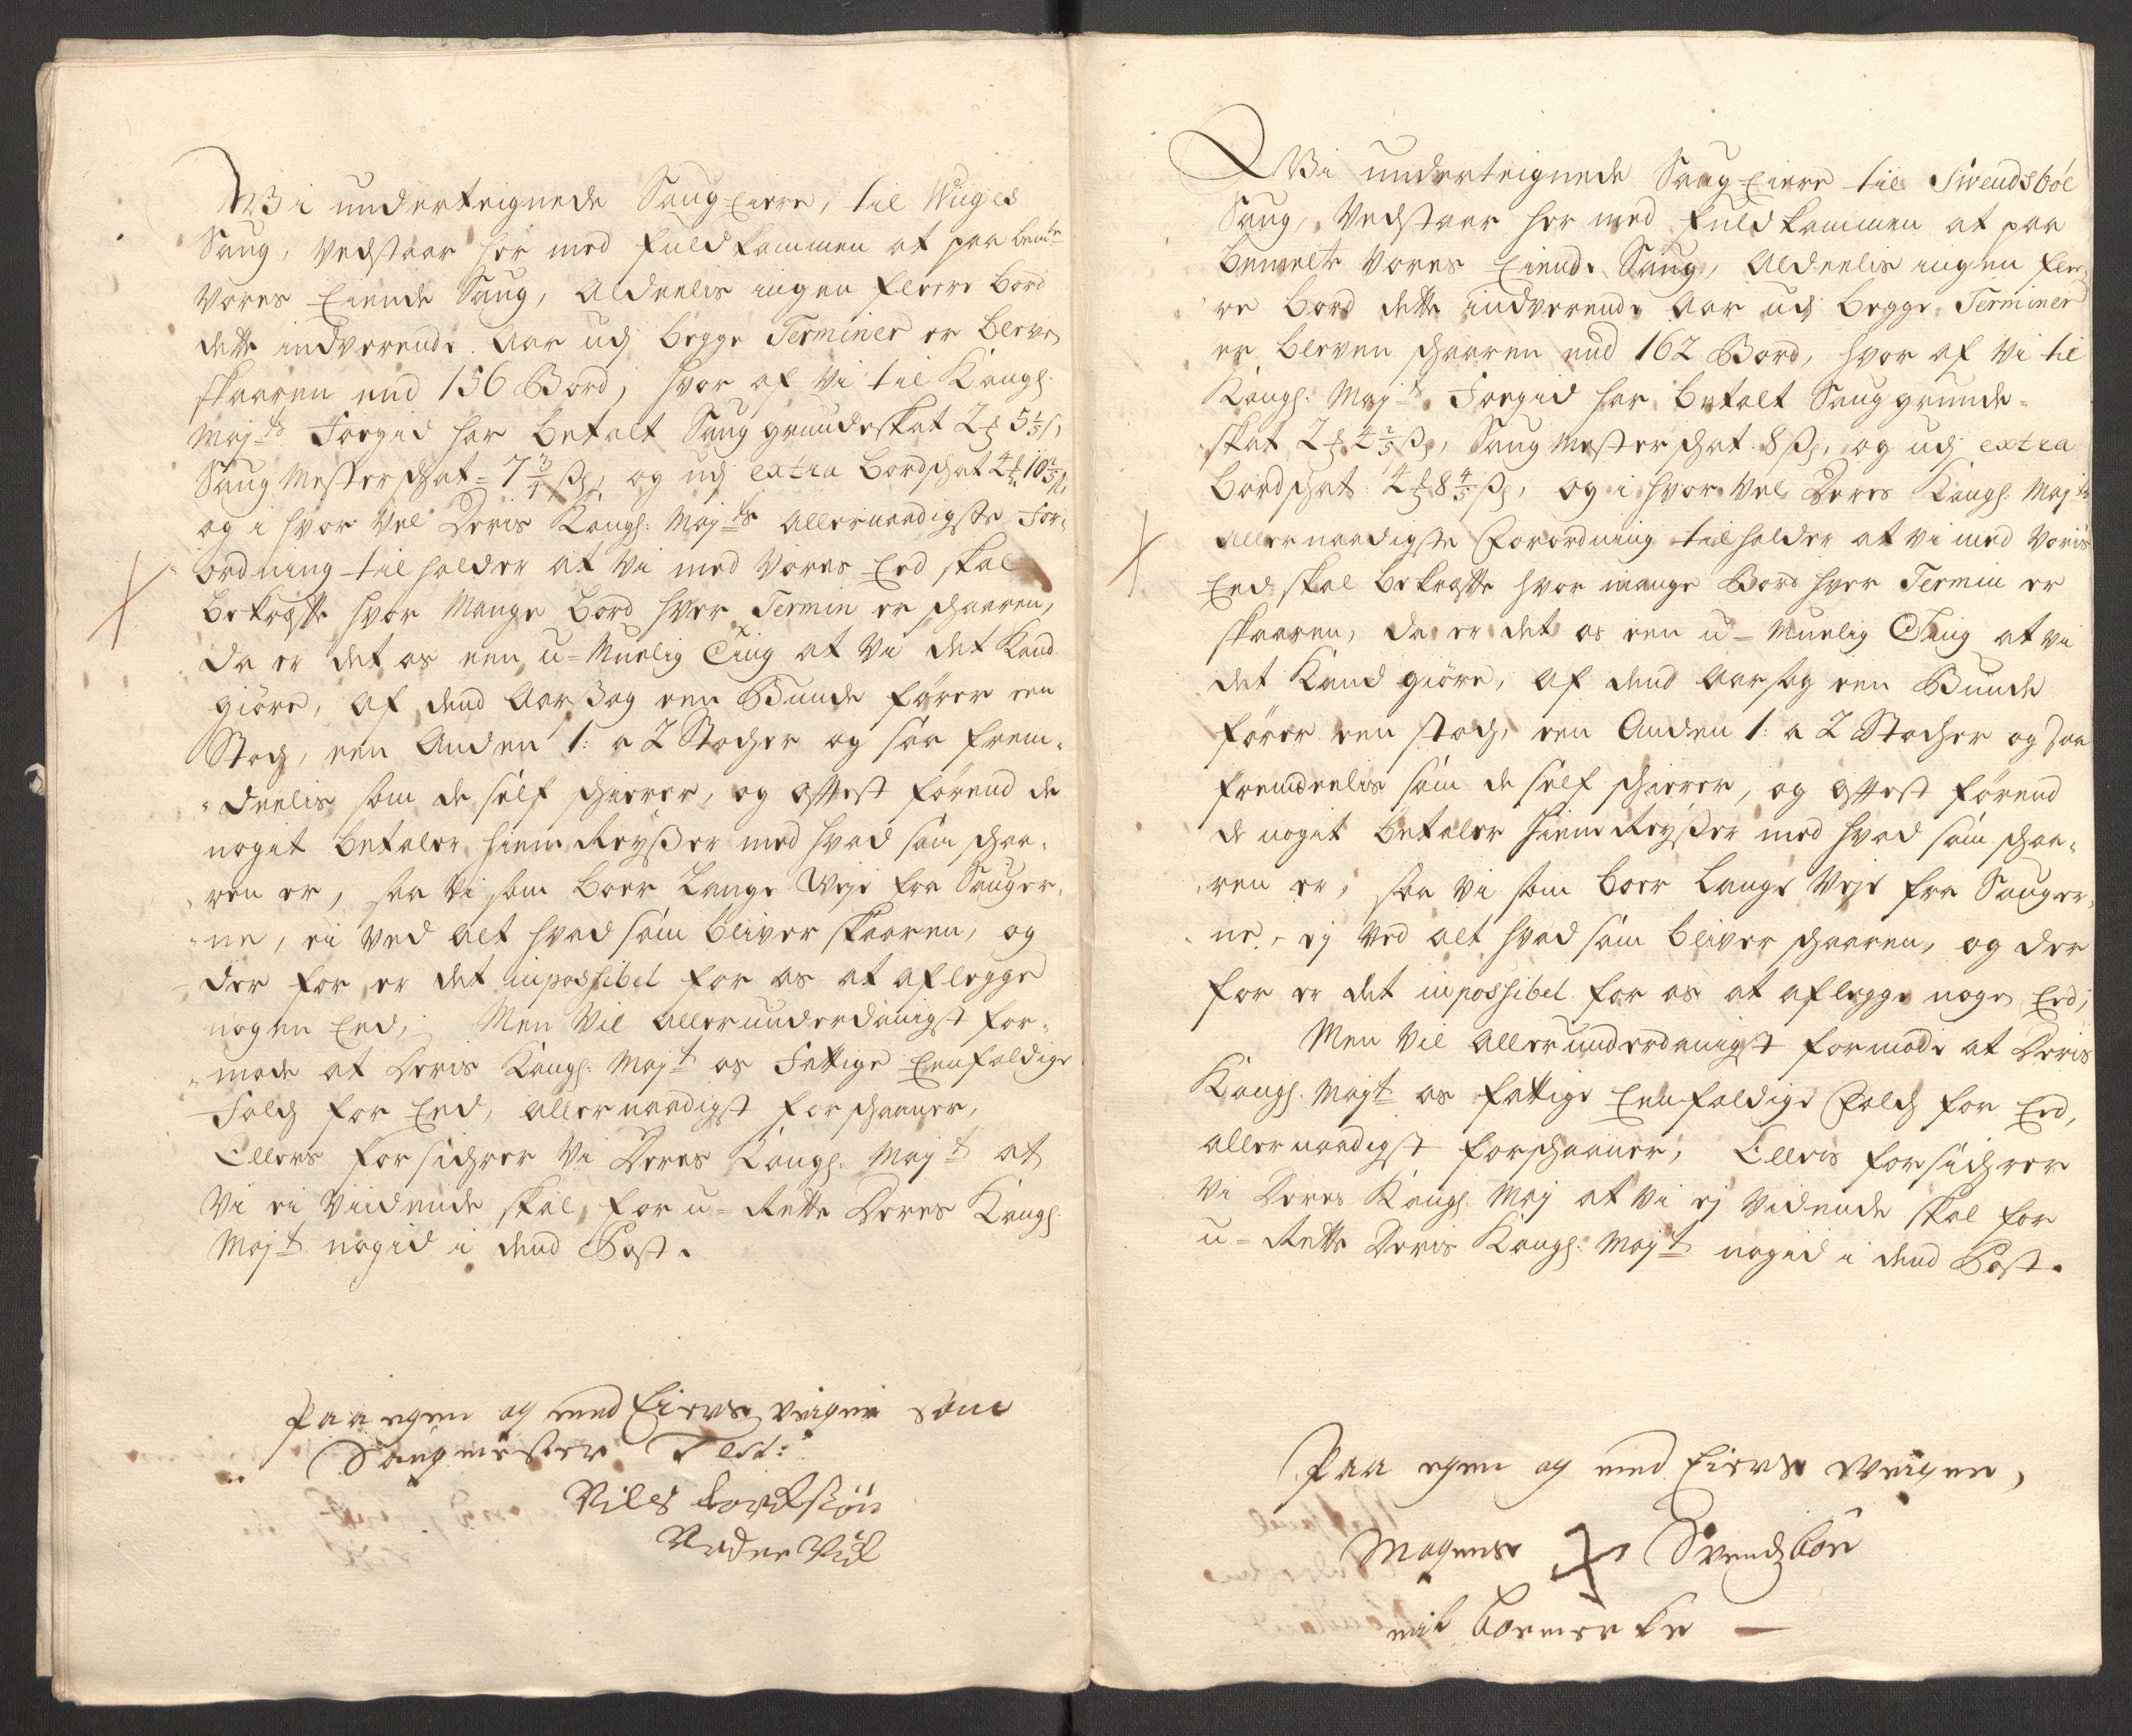 Wi underteignede Saug Eiere, til Wuges
Saug, Vedstaar her med fuldkommen at paa bemte
Vores Eiende Saug, Aldeelis ingen fleere Bord
dette indverende Aar udj begge Terminer er bleve
skaaren end 156 Bord, hvor af Vi til Kongl.
Majts Foegid har betalt Saug grundeskat 2 5 1/5 s,
Saug Mesterschat = 7 3/4 s, og udj extra Bordschat 4 10 2/5 s,
og i hvor vel Deris Kongl: Majts Allernaadigste For-
ordning tilholder at Vi med Vores Eed skal
bekrefte hvor Mange Bord hver Termin er schaaren,
da er det os een u-Muelig Ting at Vi det Kand
giöre, af dend Aarsag een Bunde förer een
Stoch, een Anden 1: a 2 Stocher og saa frem-
deelis som de self schierer, og oftest förend de
noget betaler hiem Reyszer med hvad som schaa-
ren er, saa Vi som boer Lange Veje fra Sauger-
ne, ei Ved alt hvad som bliver skaaren, og
der for er det inpossibel for os at aflegge
nogen Eed, Men Vil Allerunderdanigst for-
mode at Deris Kongl: Majt os Fattige Eenfoldige
Folch for Eed, allernaadigst forschaaner,
Ellers forsichrer Vi Deres Kongl: Majt at
Vi ei Viidende skal, for u-Rette Deres Kongl.
Majt nogid i dend Post.
Paa egen og med Eiers Veigne som
Saugmester Test:
Niels
Wi underteignede Saug Eiere til Svendsböe
Saug, Vedstaar her med fuldkommen at paa
bemelte Vores Eiende Saug, Aldeelis ingen flee-
re Bord dette indverende Aar udj begge Terminer
er bleven schaaren end 162 Bord, hvor af Vi til
Kongl: Majts Foegid har betalt Saug grunde-
skat 2 4 2/5 s, Saug Mesterschat 8 s, og udj extra
Bordschat 4 8 4/5 s, og i hvor Vel Deres Kongl: Majts
Allernaadigste Forordning tilholder at vi med Voris
Eed skal bekrefte hvor mange Bord hver Termin er
skaaren, da er det os een u-Muelig Ting at vi
det Kand giöre, af dend Aarsag een Bunde
förer een stoch, een Anden 1: a 2 Stocher og saa
fremdeelis som de self schierer, og oftest förend
de noget betaler hiem Reyszer med hvad som schaa-
ren er, saa Vi som boer Lange Veje fra Sauger-
ne, ej Ved alt hvad som bliver schaaren, og der
for er det inpossibel for os at aflegge nogen Eed,
Men Vil Allerunderdanigst formode at Deris
Kongl. Majt os fattige Eenfoldige Folch for Eed,
allernaadigst forschaaner, Elleris forsichrer
Vi Deres Kongl. Maj at Vi ej Vidende skal for
u-Rette Deris Kongl: Majt nogid i dend Post.
Paa egen og med Eiers Veigne,
Mogens Svendsböe
mit boemercke